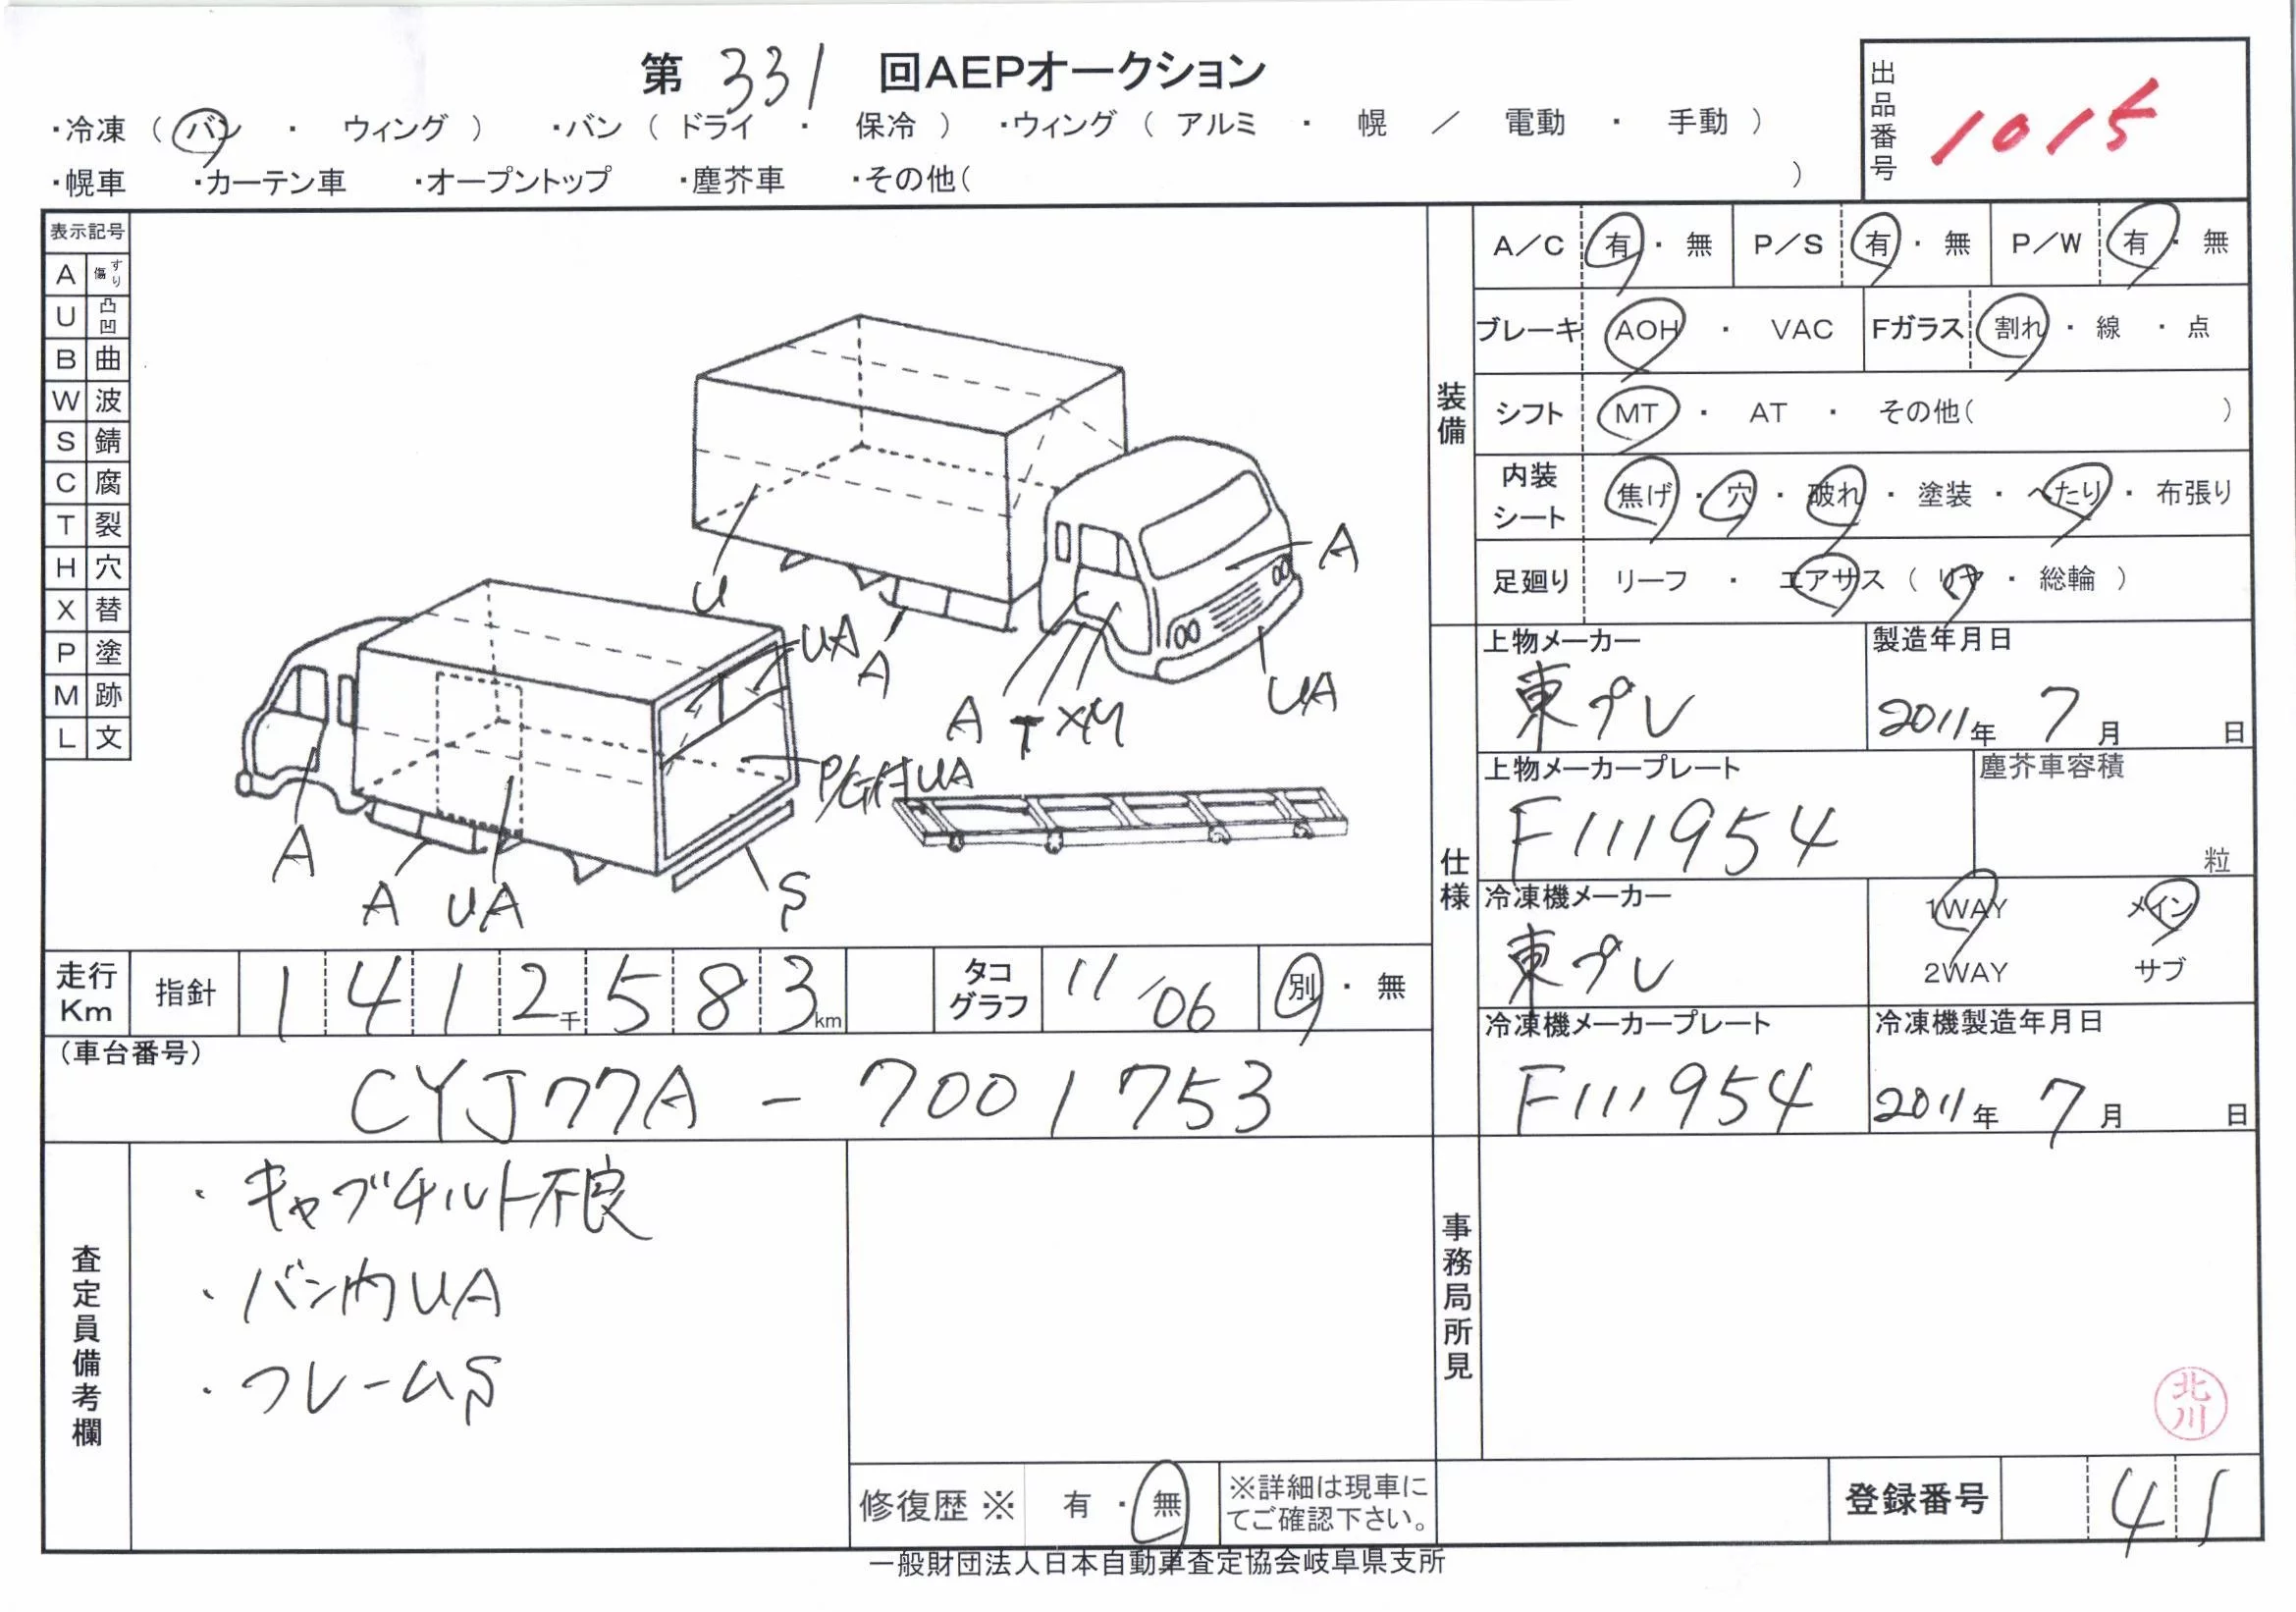 第 331 回AEPオークション
出品番号 1015
・冷凍（バン ・ ウィング） ・バン（ドライ ・ 保冷） ・ウィング（アルミ ・ 幌 ／ 電動 ・ 手動）
・幌車 ・カーテン車 ・オープントップ ・塵芥車 ・その他（ ）
表示記号
A すり傷
U 凸凹
B 曲
W 波
S 錆
C 腐
T 裂
H 穴
X 替
P 塗
M 跡
L 文
U
A
UA
A
A T XM
UA
P/G付UA
A
A UA
S
装備
A／C 有・無 P／S 有・無 P／W 有・無
ブレーキ AOH ・ VAC Fガラス 割れ・線・点
シフト MT ・ AT ・ その他（ ）
内装シート 焦げ・穴・破れ・塗装・へたり・布張り
足廻り リーフ ・ エアサス（リヤ・総輪）
仕様
上物メーカー 東プレ
製造年月日 2011年 7月 日
上物メーカープレート F111954
塵芥車容積 粒
冷凍機メーカー 東プレ
1WAY メイン
2WAY サブ
冷凍機メーカープレート F111954
冷凍機製造年月日 2011年 7月 日
走行Km 指針 1412千583km
タコグラフ 11/06 別・無
（車台番号）
CYJ77A-7001753
査定員備考欄
・キャブチルト不良
・バン内UA
・フレームS
事務局所見
北川
修復歴※ 有・無
※詳細は現車にてご確認下さい。
登録番号 41
一般財団法人日本自動車査定協会岐阜県支所